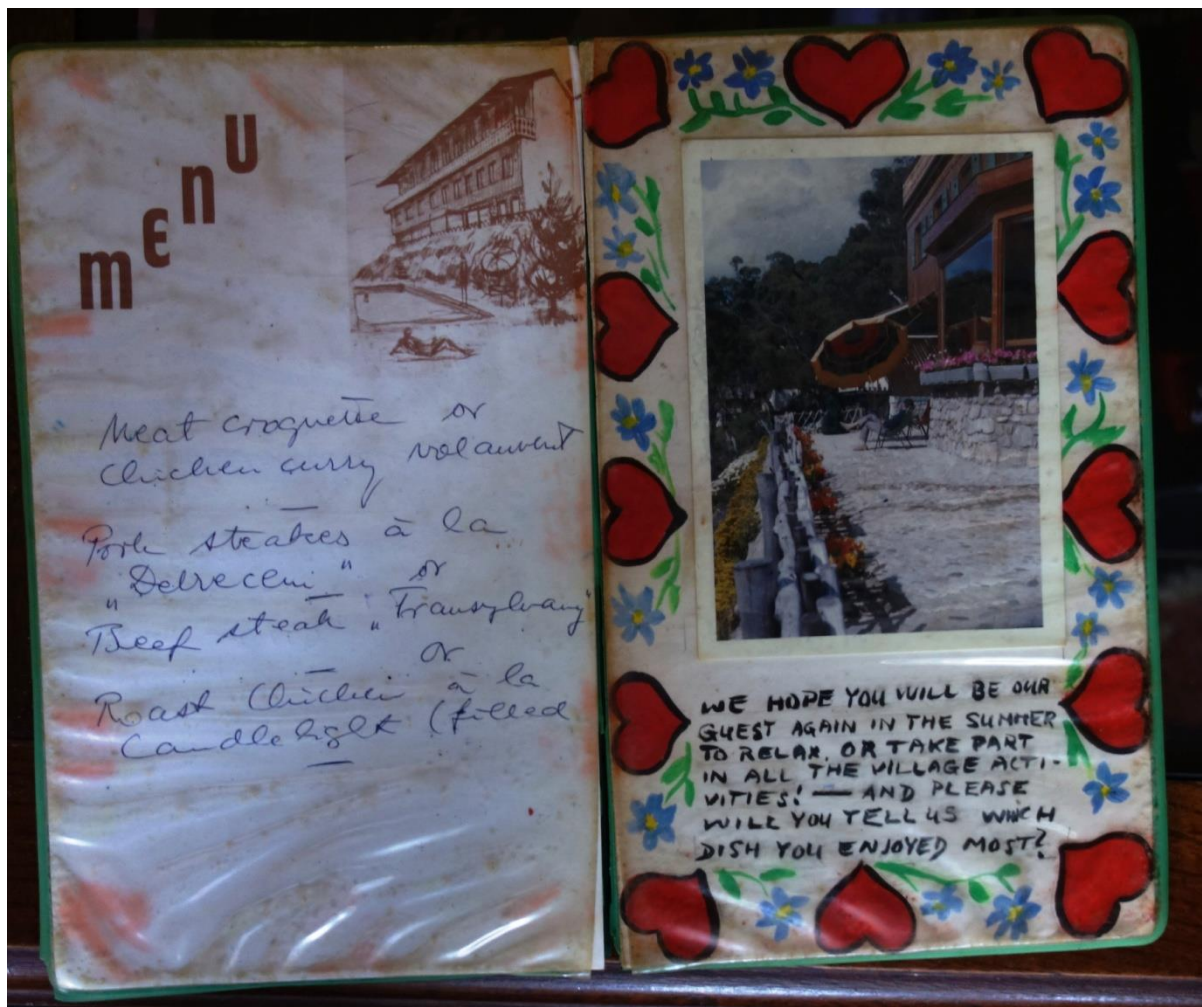 menu
Meat croquette or
Chicken curry volauvent
Pork steakes à la
"Debreceni" or
Beef steak "Transylvany"
or
Roast Chicken à la
Candlelight (filled
WE HOPE YOU WILL BE OUR
GUEST AGAIN IN THE SUMMER
TO RELAX, OR TAKE PART
IN ALL THE VILLAGE ACTI-
VITIES! — AND PLEASE
WILL YOU TELL US WHICH
DISH YOU ENJOYED MOST?